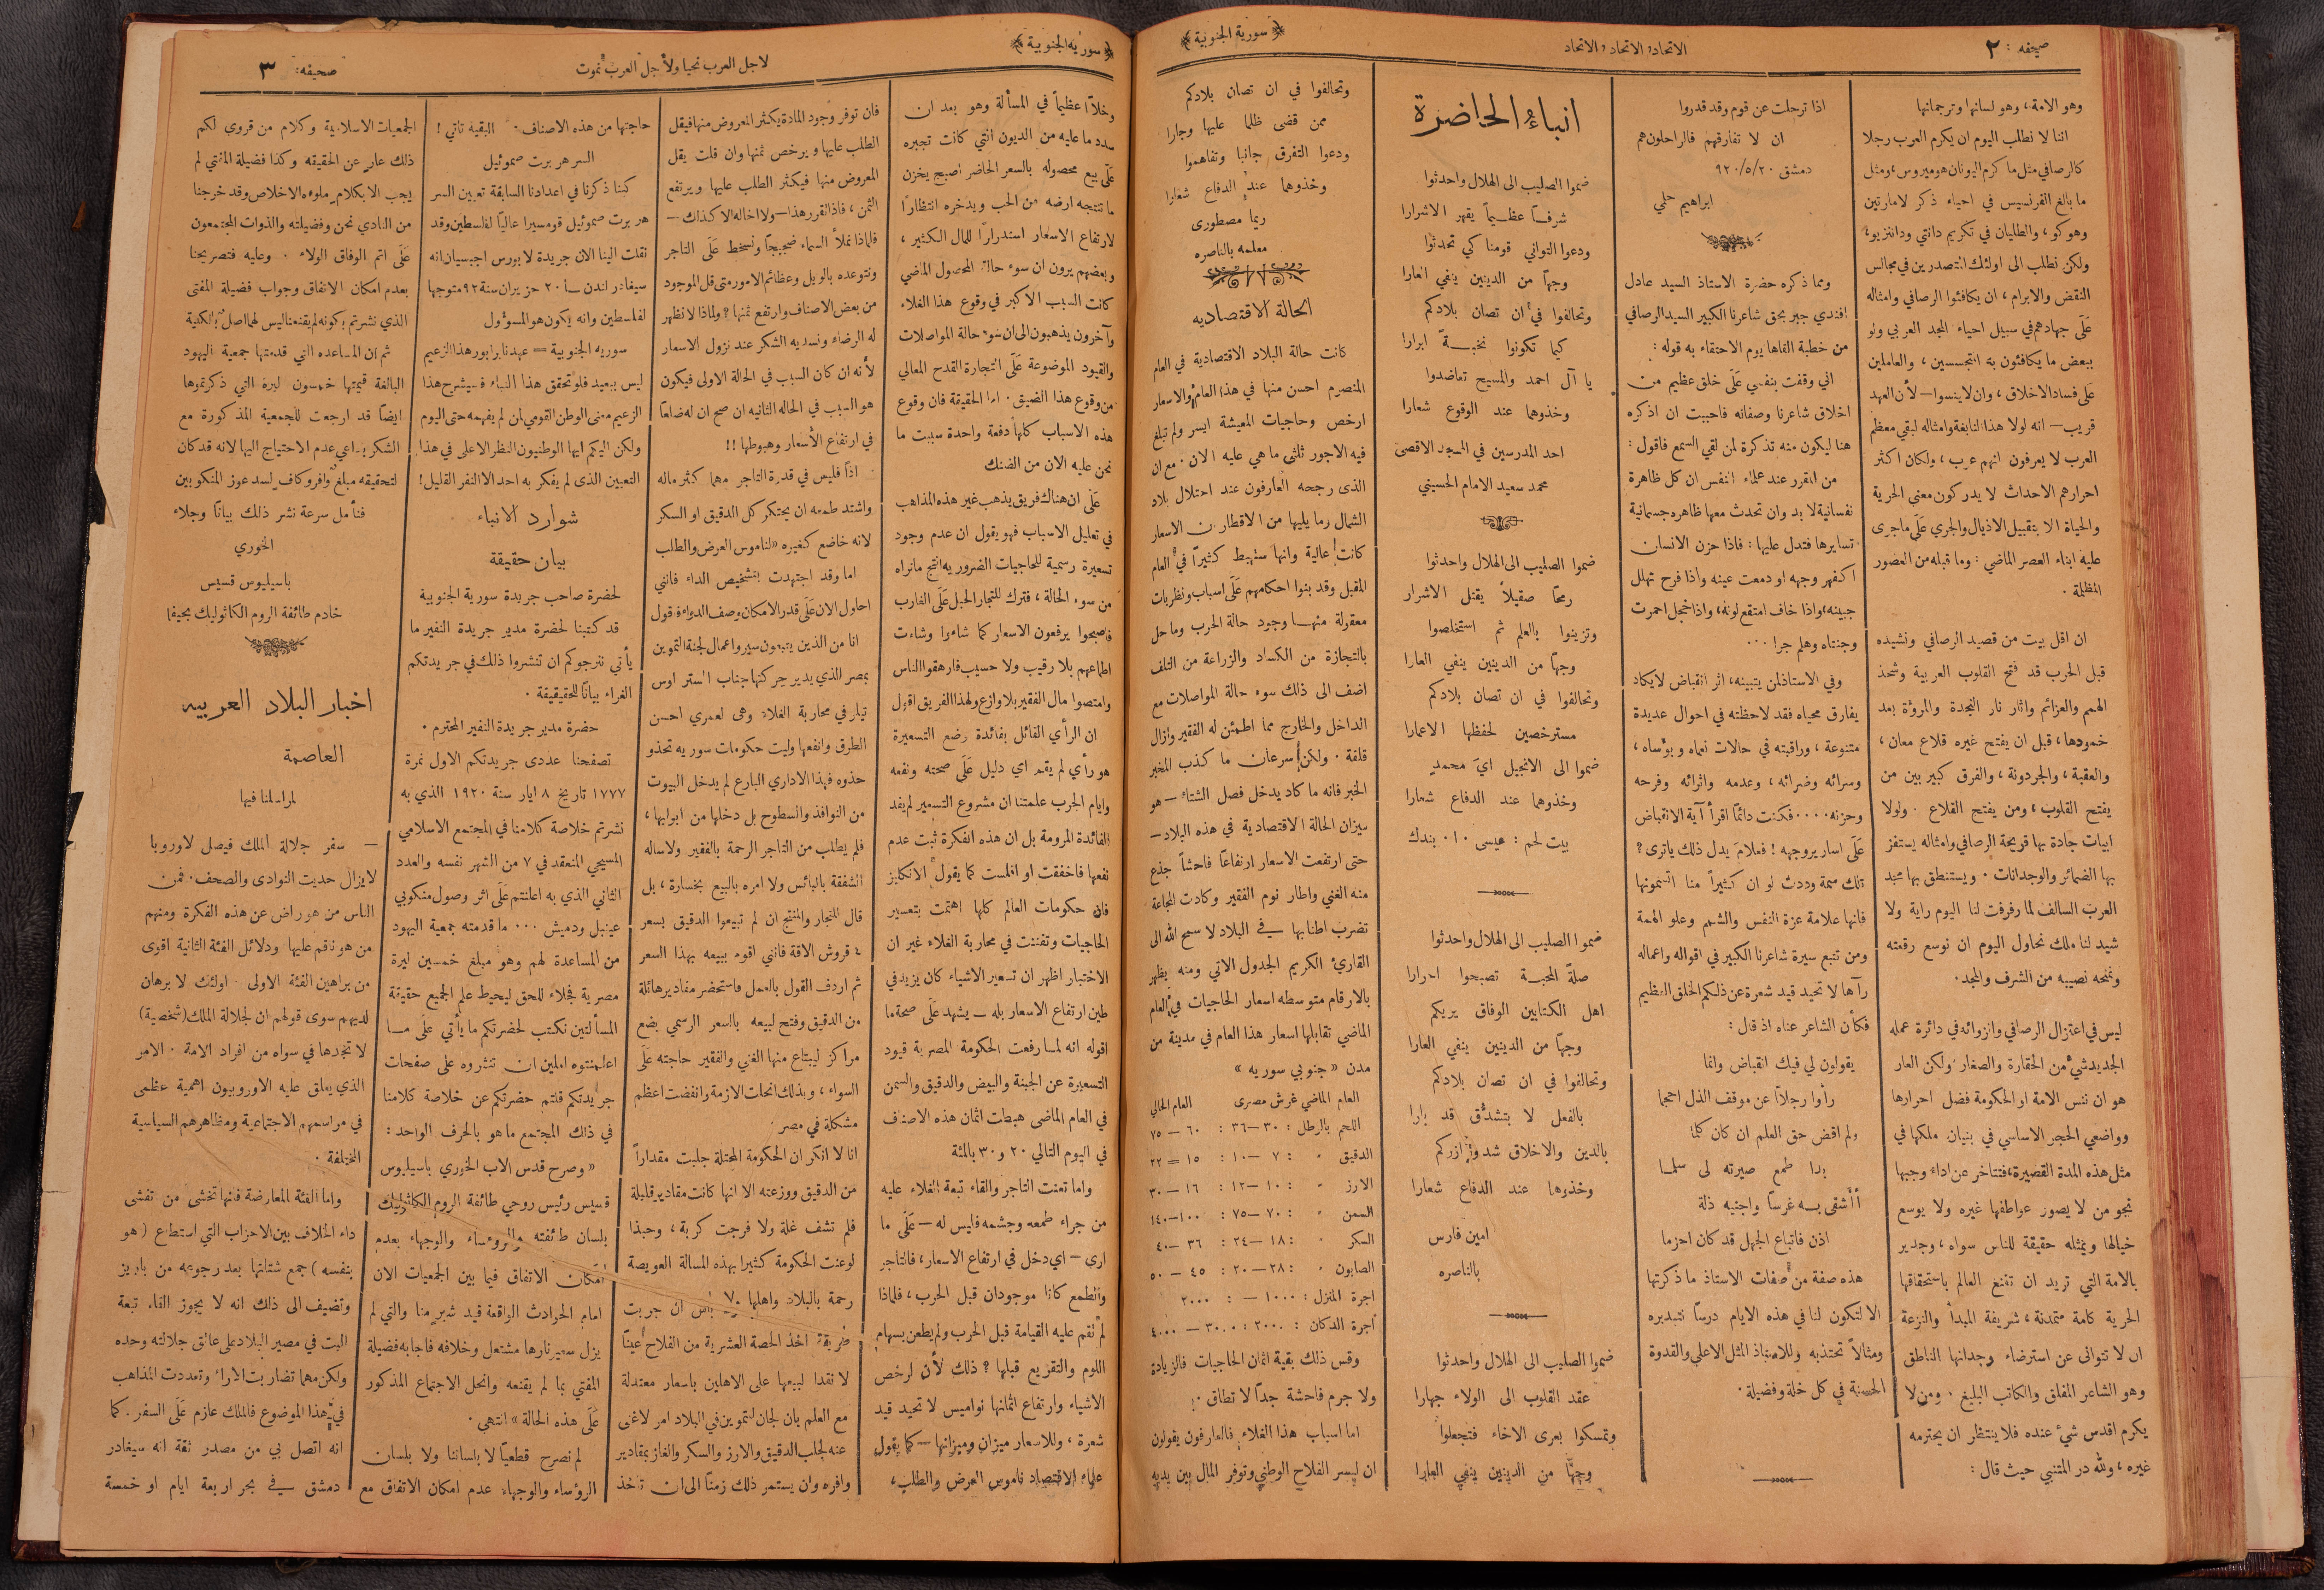 صحيفه : ٢
الاتحاد، الاتحاد، الاتحاد
﴿ سورية الجنوبية ﴾
وهو الامة ، وهو لسانها وترجمانها
اننا لا نطلب اليوم ان يكرم العرب رجلا
كالرصافي مثل ما كرم اليونان هوميروس ، ومثل
ما بالغ الفرنسيس في احياء ذكر لامارتين
وهوكو ، والطليان في تكريم دانتي ودانتزيو ؛
ولكن نطلب الى اولئك المتصدرين في مجالس
النقض والابرام ، ان يكافئوا الرصافي وامثاله
عَلَى جهادهم في سبيل احياء المجد العربي ولو
ببعض ما يكافئون به المتجسسين ، والعاملين
عَلَى فساد الاخلاق ، وان لا ينسوا — لأن العهد
قريب — انه لولا هذا النابغة وامثاله لبقي معظم
العرب لا يعرفون انهم عرب ، ولكان اكثر
احرارهم الاحداث لا يدركون معنى الحرية
والحياة الا بتقبيل الاذيال والجري عَلَى ما جرى
عليه ابناء العصر الماضي : وما قبله من العصور
المظلمة .
ان اقل بيت من قصيد الرصافي ونشيده
قبل الحرب قد فتح القلوب العربية وشحذ
الهمم والعزائم واثار نار النجدة والمروة بعد
خمودها ، قبل ان يفتح غيره قلاع معان ،
والعقبة ، والجردونة ، والفرق كبير بين من
يفتح القلوب ، ومن يفتح القلاع . ولولا
ابيات جادة بها قريحة الرصافي وامثاله يستفز
بها الضمائر والوجدانات . ويستنطق بها مجد
العرب السالف لما رفرفت لنا اليوم راية ولا
شيد لنا ملك نحاول اليوم ان نوسع رقعته
ونمنحه نصيبه من الشرف والمجد .
ليس في اعتزال الرصافي وانزوائه في دائرة عمله
الجديد شيء من الحقارة والصغار ، ولكن العار
هو ان تنس الامة او الحكومة فضل احرارها
وواضعي الحجر الاساسي في بنيان ملكها في
مثل هذه المدة القصيرة ، فتتأخر عن اداء وجبها
نحو من لا يصور عواطفها غيره ولا يوسع
خيالها ويمثله حقيقة للناس سواه ، وجدير
بالامة التي تريد ان تقنع العالم باستحقاقها
الحرية كامة متمدنة ، شريفة المبدأ والنزعة
ان لا تتوانى عن استرضاء وجدانها الناطق
وهو الشاعر المفلق والكاتب البليغ . ومن لا
يكرم اقدس شيء عنده فلا ينتظر ان يحترمه
غيره ، ولله در المتنبي حيث قال :
اذا ترحلت عن قوم وقد قدروا
ان لا تفارقهم فالراحلون هم
دمشق ٩٢٠/٥/٢٠
ابراهيم حلمي
ومما ذكره حضرة الاستاذ السيد عادل
افندي جبر بحق شاعرنا الكبير السيد الرصافي
من خطبة القاها يوم الاحتفاء به قوله :
اني وقفت بنفسي عَلَى خلق عظيم من
اخلاق شاعرنا وصفاته فاحببت ان اذكره
هنا ليكون منه تذكرة لمن لقي السمع فاقول :
من المقرر عند علماء النفس ان كل ظاهرة
نفسانية لا بد وان تحدث معها ظاهره جسمانية
تسايرها فتدل عليها : فاذا حزن الانسان
اكفهر وجهه او دمعت عينه واذا فرح تهلل
جبينه ، واذا خاف امتقع لونه ، واذا خجل احمرت
وجنتاه وهلم جرا . . .
وفي الاستاذ لمن يتبينه ، اثر انقباض لا يكاد
يفارق محياه فقد لاحظته في احوال عديدة
متنوعة ، وراقبته في حالات نعماه وبؤساه ،
وسرائه وضرائه ، وعدمه واثرائه وفرحه
وحزنه . . . . فكنت دائماً اقرأ آية الانقباض
عَلَى اسارير وجهه ! فعلامَ يدل ذلك يا ترى ؟
تلك سمة وددت لو ان كثيراً منا اتسمونها
فانها علامة عزة النفس والشمم وعلو الهمة
ومن تتبع سيرة شاعرنا الكبير في اقواله واعماله
رآها لا تحيد قيد شعرة عن ذلكم الخلق العظيم
فكأن الشاعر عناه اذ قال :
يقولون لي فيك انقباض وانما
رأوا رجلاً عن موقف الذل احجما
ولم اقض حق العلم ان كان كلما
بدا طمع صيرته لي سلما
أأشقى بـه غرساً واجنيه ذلة
اذن فاتباع الجهل قد كان احزما
هذه صفة من صفات الاستاذ ما ذكرتها
الا لتكون لنا في هذه الايام درساً نتدبره
ومثالاً نحتذبه وللاستاذ المثل الاعلى والقدوة
الحسنة في كل خلة وفضيلة .
انباء الحاضرة
ضموا الصليب الى الهلال واحدثوا
شرفـاً عظـيماً يقهر الاشرارا
ودعوا التواني قومنا كي تحدثوا
وجهاً من الدينين ينفي العارا
وتحالفوا في ان تصان بلادكم
كيما تكونوا نخبـــة ابرارا
يا آل احمد والمسيح تعاضدوا
وخذوهما عند الوقوع شعارا
احد المدرسين في المسجد الاقصى
محمد سعيد الامام الحسيني
ضموا الصليب الى الهلال واحدثوا
رمحاً صقيلاً يقتل الاشرار
وتزينوا بالعلم ثم استخلصوا
وجهاً من الدينين ينفي العارا
وتحالفوا في ان تصان بلادكم
مسترخصين لحفظها الاعمارا
ضموا الى الانجيل ايَ محمدٍ
وخذوهما عند الدفاع شعارا
بيت لحم : عيسى . ١ . بندك
ضموا الصليب الى الهلال واحدثوا
صلةَ المحبــة تصبحوا احرارا
اهل الكتابين الوفاق يريكم
وجهاً من الدينين ينفي العارا
وتحالفوا في ان تصان بلادكم
بالفعل لا بتشدُّق قد بارا
بالدين والاخلاق شدوا ازركم
وخذوهما عند الدفاع شعارا
امين فارس
بالناصره
ضموا الصليب الى الهلال واحدثوا
عقد القلوب الى الولاء جهارا
وتمسكوا بعرى الاخاء فتجعلوا
وجهاً من الدينين ينفي العارا
وتحالفوا في ان تصان بلادكم
ممن قضى ظلما عليها وجارا
ودعوا التفرق جانبا وتفاهموا
وخذوهما عند الدفاع شعارا
ريما مصطورى
معلمه بالناصره
الحالة الاقتصاديه
كانت حالة البلاد الاقتصادية في العام
المنصرم احسن منها في هذا العام والاسعار
ارخص وحاجيات المعيشة ايسر ولم تبلغ
فيه الاجور ثلثي ما هي عليه الان . مع ان
الذى رجحه العارفون عند احتلال بلاد
الشمال وما يليها من الاقطار ان الاسعار
كانت عالية وانها ستهبط كثيراً في العام
المقبل وقد بنوا احكامهم عَلَى اسباب ونظريات
معقولة منهـا وجود حالة الحرب وما حل
بالتجارة من الكساد والزراعة من التلف
اضف الى ذلك سوء حالة المواصلات مع
الداخل والخارج مما اطمئن له الفقير وازال
قلقه . ولكن سرعان ما كذب المخبر
الخبر فانه ما كاد يدخل فصل الشتاء — هو
ميزان الحالة الاقتصادية في هذه البلاد —
حتى ارتفعت الاسعار ارتفاعاً فاحشاً جذع
منه الغني واطار نوم الفقير وكادت المجاعة
تضرب اطنابها في البلاد لا سمح الله الى
القارئ الكريم الجدول الاتي ومنه يظهر
بالارقام متوسطه اسعار الحاجيات في العام
الماضي تقابلها اسعار هذا العام في مدينة من
مدن « جنوبي سوريه »
العام الماضي غرش مصرى العام الحالي
اللحم بالرطل : ٣٠ — ٣٦ : ٦٠ — ٧٥
الدقيق « : ٧ — ١٠ : ١٥ — ٢٢
الارز « : ١٠ — ١٢ : ١٦ — ٣٠
السمن « : ٧٠ — ٧٥ : ١٠٠ — ١٤٠
السكر « : ١٨ — ٢٤ : ٣٦ — ٤٠
الصابون « : ٢٨ — ٢٠ : ٤٥ — ٥٠
اجرة المنزل : ١٠٠٠ — : ٢٠٠٠
أجرة الدكان : ٢٠٠٠ : ٣٠٠٠ — ٤٠٠٠
وقس ذلك بقية اثمان الحاجيات فالزيادة
ولا جرم فاحشة جداً لا تطاق . !
اما اسباب هذا الغلاء فالعارفون يقولون
ان ليسر الفلاح الوطني وتوفر المال بين يديه
﴿ سوريه الجنوبية ﴾
لاجل العرب نحيا ولأجل العرب نموت
صحيفه : ٣
دخلاً عظيماً في المسألة وهو بعد ان
سدد ما عليه من الديون التي كانت تجبره
عَلَى بيع محصوله بالسعر الحاضر اصبح يخزن
ما تنتجه ارضه من الحب ويدخره انتظاراً
لارتفاع الاسعار استدراراً للمال الكثير ،
وبعضهم يرون ان سوء حالة المحصول الماضي
كانت السبب الاكبر في وقوع هذا الغلاء
وآخرون يذهبون الى ان سوء حالة المواصلات
والقيود الموضوعة عَلَى التجارة القدح المعالي
من وقوع هذا الضيق . اما الحقيقة فان وقوع
هذه الاسباب كلها دفعة واحدة سببت ما
نحن عليه الان من الضنك
عَلَى ان هنالك فريق يذهب غير هذه المذاهب
في تعليل الاسباب فهو يقول ان عدم وجود
تسعيرة رسمية للحاجيات الضروريه انتج ما نراه
من سوء الحالة ، فترك للتجار الحبل عَلَى الغارب
فاصبحوا يرفعون الاسعار كما شاءوا وشاءت
اطماعهم بلا رقيب ولا حسيب فارهقوا الناس
وامتصوا مال الفقير بلا وازع ولهذا الفريق اقول
ان الرأي القائل بفائدة وضع التسعيرة
هو رأي لم يقم اي دليل عَلَى صحته ونفعه
وايام الحرب علمتنا ان مشروع التسعير لم يفد
الفائدة المرومة بل ان هذه الفكرة ثبت عدم
نفعها فاخفقت او افلست كما يقول الانكليز
فان حكومات العالم كلها اهتمت بتعسير
الحاجيات وتفننت في محاربة الغلاء غير ان
الاختبار اظهر ان تسعير الاشياء كان يزيد في
طين ارتفاع الاسعار بله — يشهد عَلَى صحة ما
اقوله انه لما رفعت الحكومة المصرية قيود
التسعيرة عن الجبنة والبيض والدقيق والسمن
في العام الماضى هبطت اثمان هذه الاصناف
في اليوم التالي ٢٠ و ٣٠ بالمئة
واما تعنت التاجر والقاء تبعة الغلاء عليه
من جراء طمعه وجشعه فليس له — عَلَى ما
ارى — اي دخل في ارتفاع الاسعار ، فالتاجر
والطمع كانا موجودان قبل الحرب ، فلماذا
لم نقم عليه القيامة قبل الحرب ولم يطعن بسهام
اللوم والتقريع قبلها ؟ ذلك لأن لرخص
الاشياء وارتفاع اثمانها نواميس لا تحيد قيد
شعرة ، وللاسعار ميزان وميزانها — كما يقول
علماء الاقتصاد ناموس العرض والطلب ،
فان توفر وجود المادة يكثر المعروض منها فيقل
الطلب عليها ويرخص ثمنها وان قلت يقل
المعروض منها فيكثر الطلب عليها ويرتفع
الثمن ، فاذا تقرر هذا — ولا اخاله الا كذلك —
فلماذا نملأ السماء ضجيجاً ونسخط عَلَى التاجر
ونتوعده بالويل وعظائم الامور متى قل الموجود
من بعض الاصناف وارتفع ثمنها ؟ ولماذا لا نظهر
له الرضاء ونسديه الشكر عند نزول الاسعار
لأنه ان كان السبب في الحالة الاولى فيكون
هو السبب في الحاله الثانيه ان صح ان له ضلعاً
في ارتفاع الأسعار وهبوطها !!
اذاً فليس في قدرة التاجر مهما كثر ماله
واشتد طمعه ان يحتكر كل الدقيق او السكر
لانه خاضع كغيره «لناموس العرض والطلب
اما وقد اجتهدت بتشخيص الداء فانني
احاول الان عَلَى قدر الامكان وصف الدواء فاقول
انا من الذين يتبعون سير واعمال لجنة التموين
بمصر الذي يدير حركتها جناب المستر اوس
تيلر في محاربة الغلاء وهى لعمري احسن
الطرق وانفعها وليت حكومات سوريه تحذو
حذوه فهذا الاداري البارع لم يدخل البيوت
من النوافذ والسطوح بل دخلها من ابوابها ،
فلم يطلب من التاجر الرحمة بالفقير ولا ساله
الشفقة بالبائس ولا امره بالبيع بخسارة ، بل
قال للتجار والمنتج ان لم تبيعوا الدقيق بسعر
٤ قروش الاقة فانني اقوم ببيعه بهذا السعر
ثم اردف القول بالعمل فاستحضر مقادير هائلة
من الدقيق وفتح لبيعه بالسعر الرسمي بضع
مراكز ليبتاع منها الغني والفقير حاجته عَلَى
السواء ، وبذلك انحلت الازمة وانفضت اعظم
مشكلة في مصر
انا لا انكر ان الحكومة المحتلة جلبت مقداراً
من الدقيق ووزعته الا انها كانت مقادير قليلة
فلم تشف غلة ولا فرجت كربة ، وحبذا
لو عنت الحكومة كثيرا بهذه المسالة العويصة
رحمة بالبلاد واهلها ولا بأس ان جربت
طريقة اخذ الحصة العشرية من الفلاح عيناً
لا نقدا لبيعها على الاهلين باسعار معتدلة
مع العلم بان لجان للتموين في البلاد امر لا غنى
عنه لجلب الدقيق والارز والسكر والغاز بمقادير
وافره وان يستمر ذلك زمناً الى ان تأخذ
حاجتها من هذه الاصناف . البقيه تاتي !
السر هربرت صموئيل
كنا ذكرنا في اعدادنا السابقة تعيين السر
هربرت صموئيل قومسيرا عاليًا لفلسطين وقد
نقلت الينا الان جريدة لابورس اجبسيان انه
سيغادر لندن ٢٠ حزيران سنة ٩٢ متوجها
لفلسطين وانه يكون هو المسؤول
سوريه الجنوبية = عهدنا برابور هذا الزعيم
ليس ببعيد فلو تحقق هذا النباء فسيشرح هذا
الزعيم معنى الوطن القومي لمن لم يفهمه حتى اليوم
ولكن اليكم ايها الوطنيون النظر الاعلى في هذا
التعيين الذى لم يفكر به احد الا النفر القليل !
شوارد الانباء
بيان حقيقة
لحضرة صاحب جريدة سورية الجنوبية
قد كتبنا لحضرة مدير جريدة النفير ما
يأتي نرجوكم ان تنشروا ذلك في جريدتكم
الغراء بياناً للحقيقة .
حضرة مدير جريدة النفير المحترم .
تصفحنا عددى جريدتكم الاول نمرة
١٧٧٧ تاريخ ٨ ايار سنة ١٩٢٠ الذي به
نشرتم خلاصة كلامنا في المجتمع الاسلامي
المسيحي المنعقد في ٧ من الشهر نفسه والعدد
الثاني الذي به اعلنتم عَلَى اثر وصول منكوبي
عينبل ودميش . . . ما قدمته جمعية اليهود
من المساعدة لهم وهو مبلغ خمسين ليرة
مصرية فجلاء للحق ليحيط علم الجميع حقيقة
المسألتين نكتب لحضرتكم ما يأتي عَلَى مـا
اعلمتموه املين ان تنشروه على صفحات
جريدتكم قلتم حضرتكم عن خلاصة كلامنا
في ذلك المجتمع ما هو بالحرف الواحد :
« وصرح قدس الاب الخوري باسيليوس
قسيس رئيس روحي طائفة الروم الكاثوليك
بلسان طائفته والروءساء والوجهاء بعدم
امكان الاتفاق فيما بين الجمعيات الان
امام الحوادث الواقعة قيد شبر منا والتي لم
يزل سعير نارها مشتعل وخلافه فاجابه فضيلة
المفتي بما لم يقنعه وانحل الاجتماع المذكور
عَلَى هذه الحالة » انتهى .
لم نصرح قطعيًا لا بلساننا ولا بلسان
الرؤساء والوجهاء عدم امكان الاتفاق مع
الجمعيات الاسلامية وكلام من قروي لكم
ذلك عارٍ عن الحقيقه وكذا فضيلة المفتي لم
يجب الا بكلام ملوءه الاخلاص وقد خرجنا
من النادي نحن وفضيلته والذوات المجتمعون
عَلَى اتم الوفاق الولاء . وعليه فتصريحنا
بعدم امكان الاتفاق وجواب فضيلة المفتى
الذي نشرتم بكونه لم يقنعنا ليس لهما اصل بالكلية
ثم ان المساعده التي قدمتها جمعية اليهود
البالغة قيمتها خمسون ليرة التي ذكرتموها
ايضًا قد ارجعت للجمعية المذكورة مع
الشكر بداعي عدم الاحتياج اليها لانه قد كان
لتحقيقه مبلغ وافر وكاف لسد عوز المنكوبين
فنأمل سرعة نشر ذلك بياناً وجلاء
الخوري
باسيليوس قسيس
خادم طائفة الروم الكاثوليك بحيفا
اخبار البلاد العربيه
العاصمة
لمراسلنا فيها
— سفر جلالة الملك فيصل لاوروبا
لا يزال حديث النوادى والصحف . فمن
الناس من هو راض عن هذه الفكرة ومنهم
من هو ناقم عليها ودلائل الفئة الثانية اقوى
من براهين الفئة الاولى . اولئك لا برهان
لديهم سوى قولهم ان لجلالة الملك (شخصية)
لا تجدها في سواه من افراد الامة . الامر
الذي يعلق عليه الاوروبيون اهمية عظمى
في مراسمهم الاجتماعية ومظاهرهم السياسية
المختلفة .
واما الفئة المعارضة فانها تخشى من تفشى
داء الخلاف بين الاحزاب التي استطاع ( هو
بنفسه ) جمع شتاتها بعد رجوعه من باريز
وتضيف الى ذلك انه لا يجوز القاء تبعة
البت في مصير البلاد على عاتق جلالته وحده
ولكن مهما تضاربت الاراء وتعددت المذاهب
في هذا الموضوع فالملك عازم عَلَى السفر . كما
انه اتصل بي من مصدر ثقة انه سيغادر
دمشق في بحر اربعة ايام او خمسة